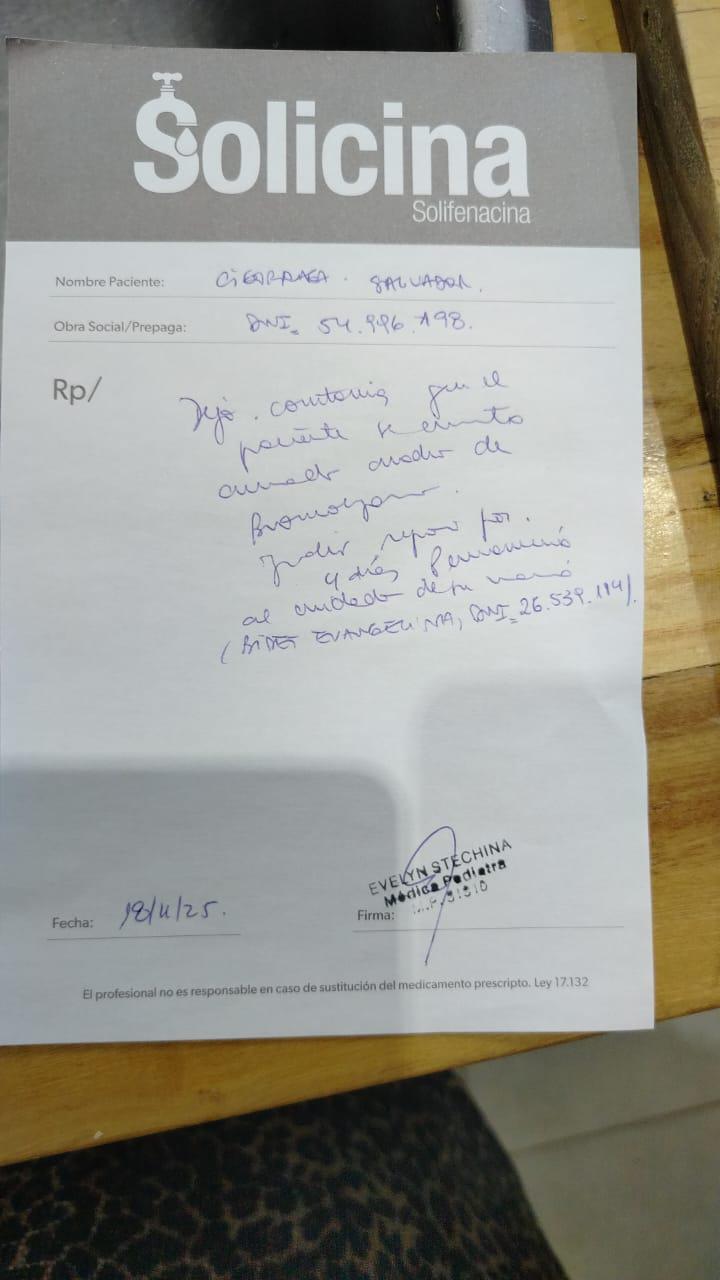 Solicina
Solifenacina
Nombre Paciente: SALVADOR.
Obra Social/Prepaga: DNI= 54.996.198.
Rp/
Dejo constancia que el
paciente se encuentra
cursando cuadro de
Indico reposo por
4 días Permanecerá
al cuidado de su mamá
(BIDET EVANGELINA, DNI= 26.539.114).
EVELYN STECHINA
Médica Pediatra
Fecha: 18/11/25. Firma:
El profesional no es responsable en caso de sustitución del medicamento prescripto. Ley 17.132